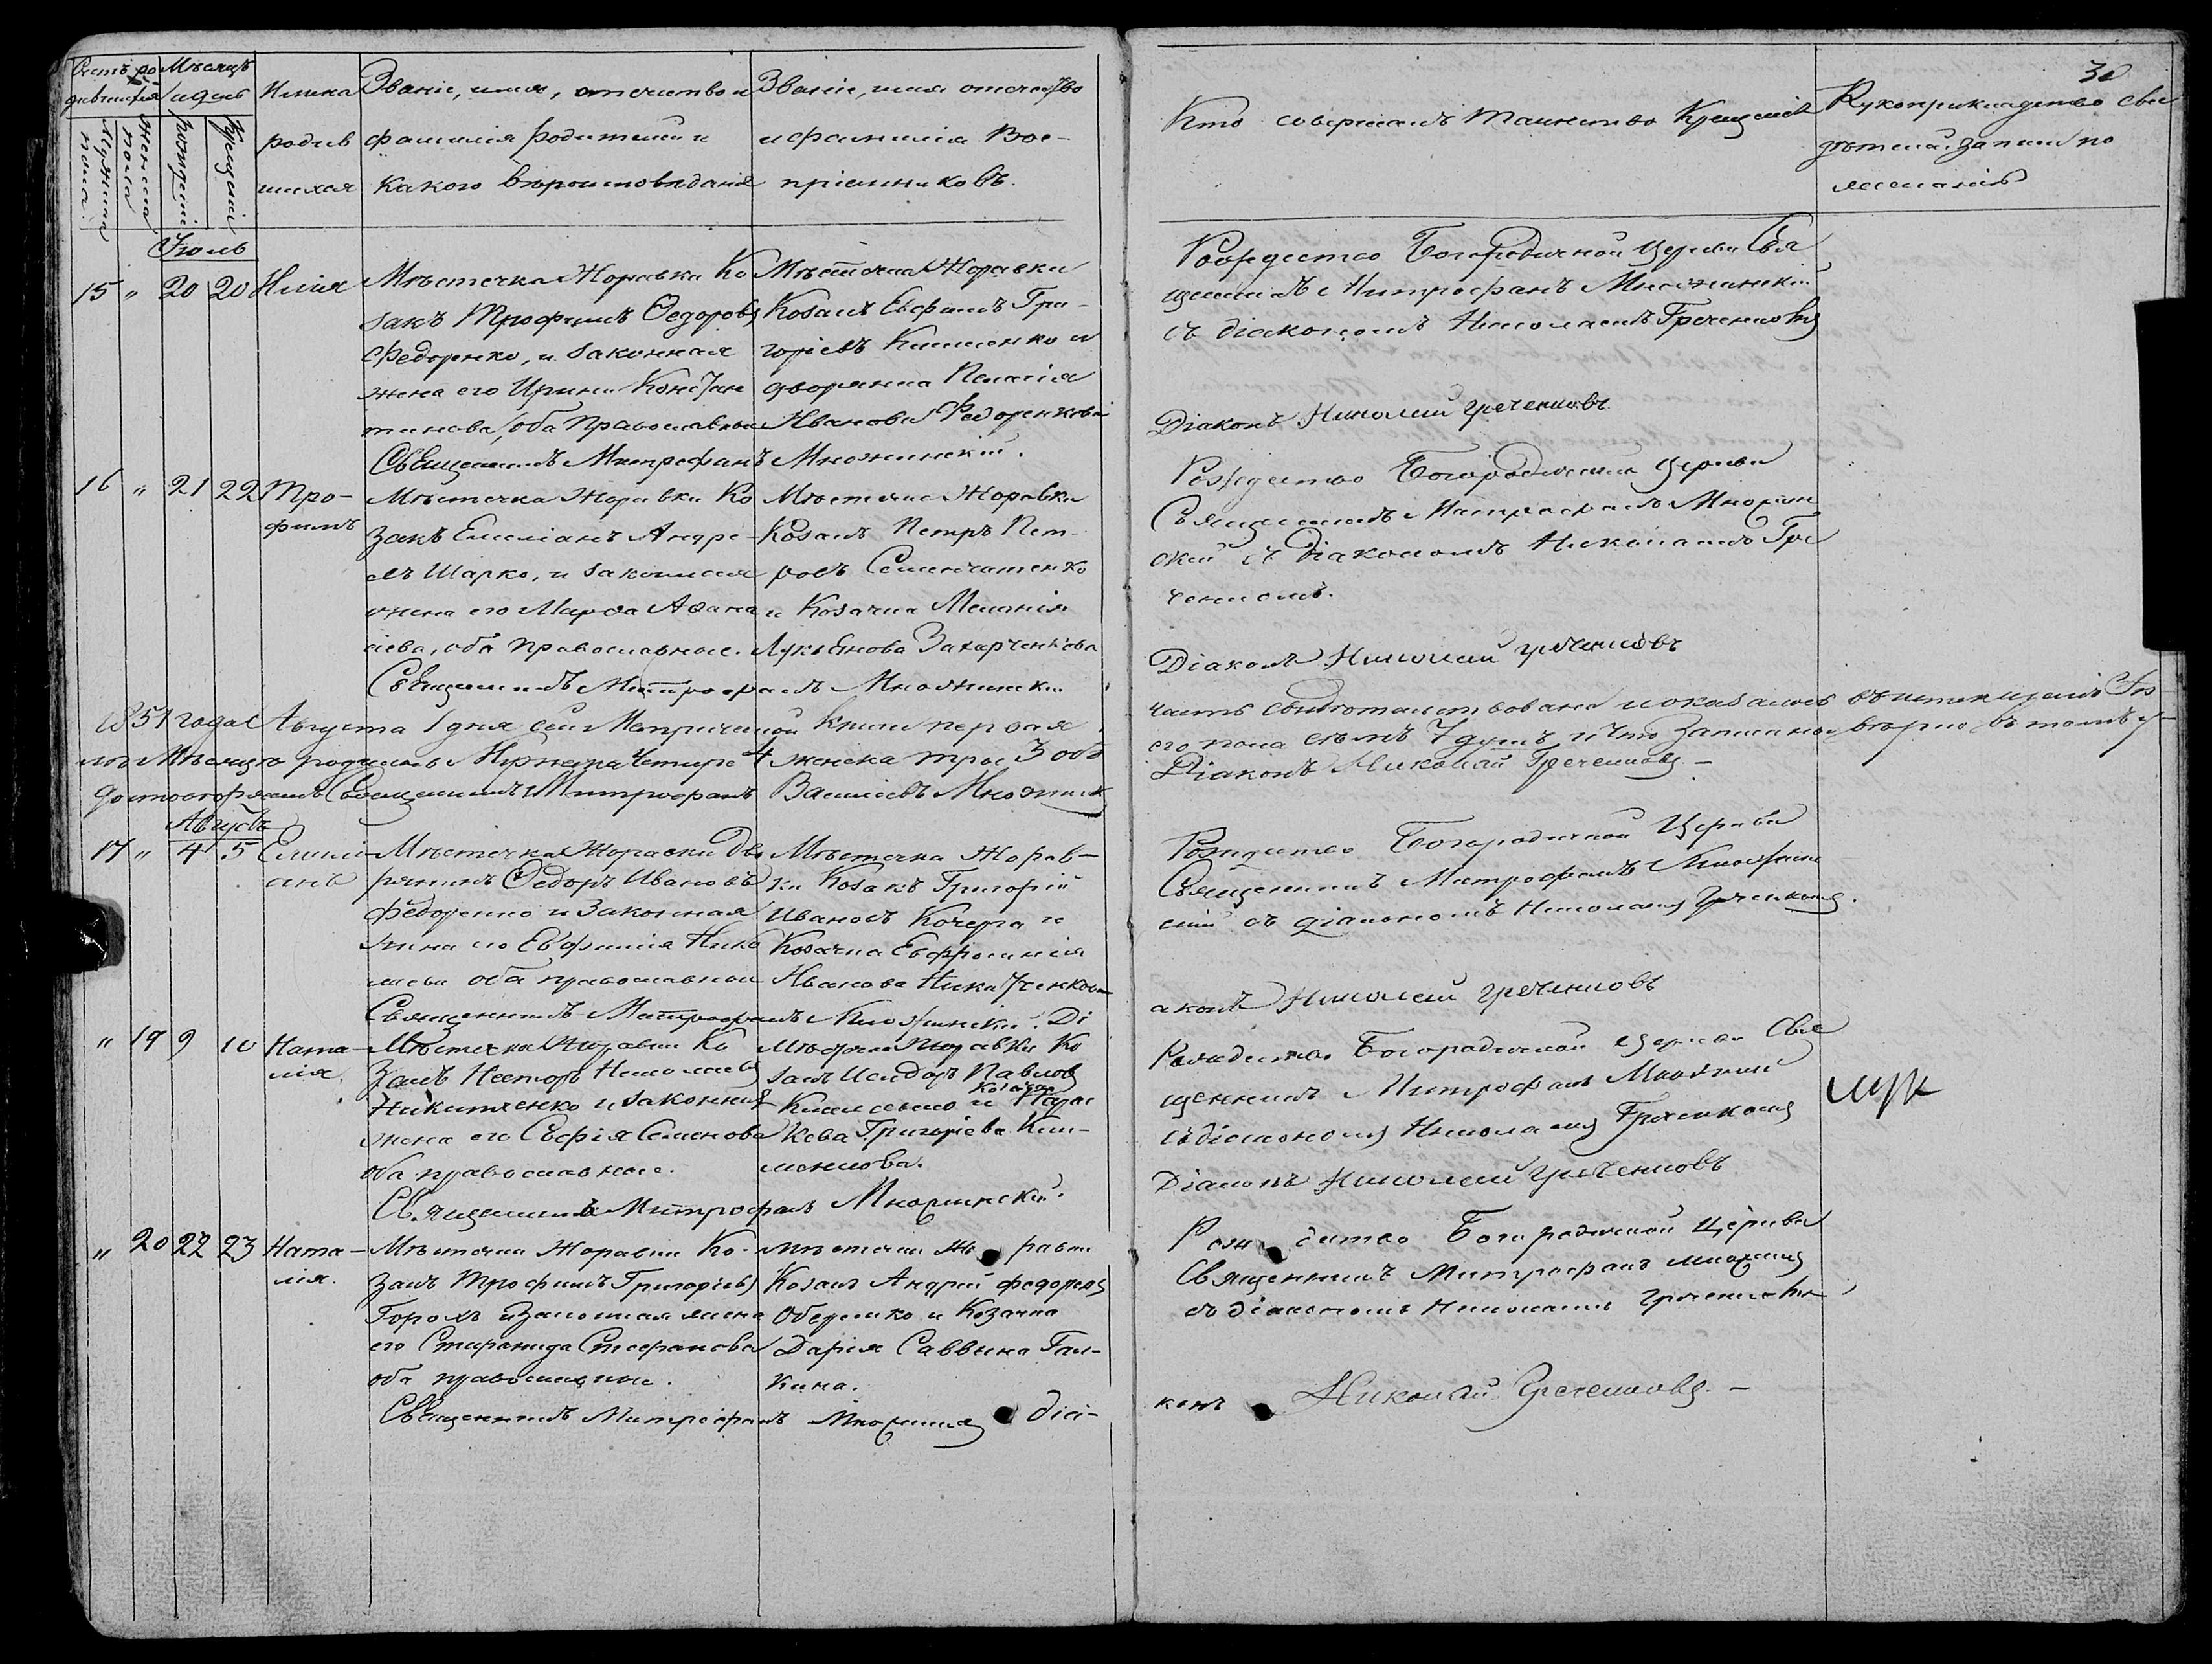 30
Счетъ ро
дившихся
Мѣсяцъ
и день
Мужеска
пола
Женска
пола
рожденія
крещенія
Имена
родив
шихся
Званіе, имя, отечество и
фамилія родителей и
какого вѣроисповѣданія
Званіе, имя отечество
и фамилія Вос-
пріемниковъ.
Кто совершалъ таинство Крещенія
Рукоприкладство сви
дѣтелей записи по
желанію
Іюль
15 " 20 20 Илія
Мѣстечка Журавки Ко
закъ Трофимъ Ѳедоровъ
Федоренко, и законная
жена его Ирина Констан
тинова, оба Православные
Мѣстечка Журавки
Козакъ Евфимъ Гри-
горіевъ Клименко и
дворянка Пелагія
Иванова Федоренкова
Рождество Богородичной церкви Свя
щенникъ Митрофанъ Множинскій
съ діакономъ Николаемъ Греченковым
Священникъ Митрофанъ Множинскій.
Діаконъ Николай Греченковъ
16 " 21 22 Тро-
фимъ
Мѣстечка Журавки Ко
закъ Емеліанъ Андре-
евъ Шарко, и законная
жена его Марѳа Аѳана
сіева, оба православные.
Мѣстечка Журавки
Козакъ Петръ Пет-
ровъ Семенчатенко
и Козачка Меланія
Лукьянова Захарченкова
Рождество Богородичной Церкви
Священникъ Митрофанъ Множин
скій съ Діакономъ Николаемъ Гре
ченкомъ.
Священникъ Митрофанъ Множинскій
Діаконъ Николай Греченковъ
1851 года Августа 1 дня сей Метрической книги первая
часть свидѣтельствована и оказалось въ истекшемъ Ію-
лѣ Мѣсяцѣ родилось Мужеска четыре 4 женска трое 3 обо
его пола семъ 7 душъ и что записано вѣрно въ томъ у-
достовѣряемъ Священникъ Митрофанъ Василіевъ Множинск
Діаконъ Николай Греченковъ –
Августъ
17 " 4 5 Емили
анъ
Мѣстечка Журавки Дво
рянинъ Ѳедоръ Ивановъ
Федоренко и Законная
жена его Евфимія Нико
лаева оба православные
Мѣстечка Журав-
ки Козакъ Григорій
Ивановъ Кочерга и
Козачка Евфросинія
Иванова Никитченкова
Рождество Богородичной Церкви
Священникъ Митрофанъ Множин
скій съ діакономъ Николаемъ Греченковым.
Священникъ Митрофанъ Множинскій. Ді
аконъ Николай Греченковъ
" 19 9 10 Ната-
лія.
Мѣстечка Журавки Ко
закъ Несторъ Николаевъ
Никитченко и законная
жена его Софія Семенова
оба православные.
Мѣстечка Журавки Ко
закъ Исидоръ Павловъ
Клименко и козачка Парас
кева Григорієва Кли-
менкова.
Рождество Богородичной Церкви Свя
щенникъ Митрофанъ Множинскій
съ діакономъ Николаемъ Греченковым
Священникъ Митрофанъ Множинскій.
Діаконъ Николай Греченковъ
" 20 22 23 Ната-
лія.
Мѣстечка Журавки Ко-
закъ Трофимъ Григоріевъ
Горохъ и Законная жена
его Стиранида Стефанова
оба православные.
Мѣстечка Журавки
Козакъ Андрей Федоровъ
Обеденко и Козачка
Дарія Саввина Гал-
кина.
Рождество Богородичной Церкви
Священникъ Митрофанъ Множинск
съ діакономъ Николаемъ Греченковым
Священникъ Митрофанъ Множинск діа-
конъ Николай Греченковъ. –